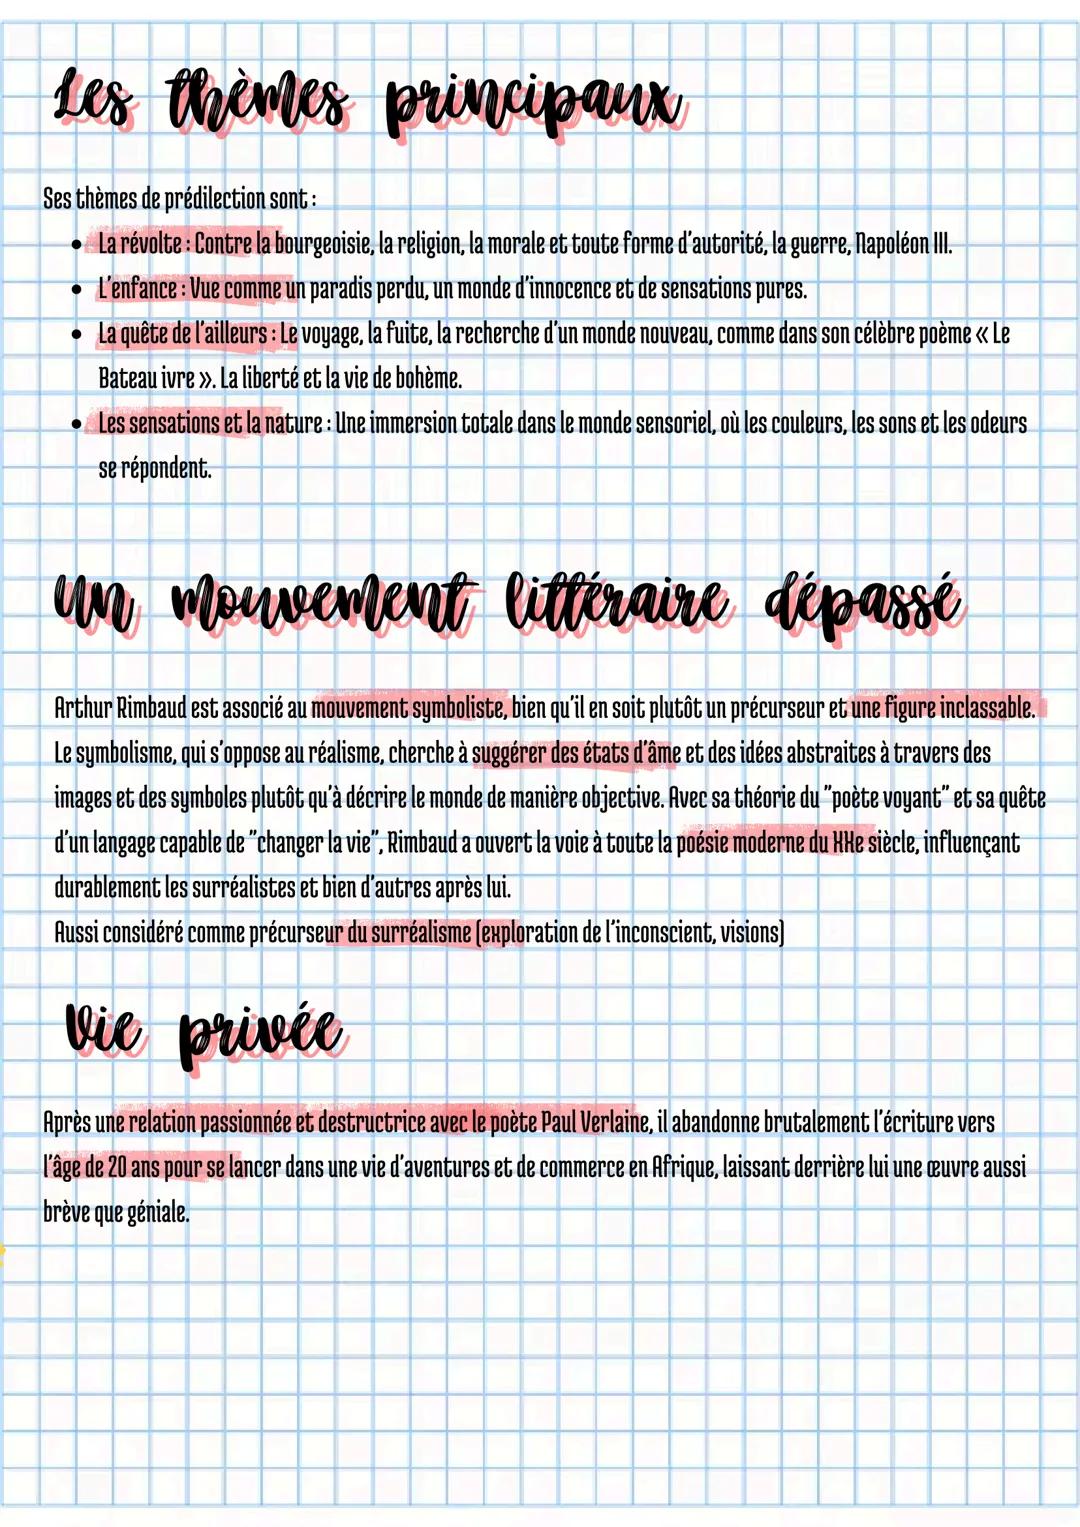 Les thèmes principaux
Ses thèmes de prédilection sont :
• La révolte : Contre la bourgeoisie, la religion, la morale et toute forme d'autorité, la guerre, Napoléon III.
• L'enfance : Vue comme un paradis perdu, un monde d'innocence et de sensations pures.
• La quête de l'ailleurs : Le voyage, la fuite, la recherche d'un monde nouveau, comme dans son célèbre poème « Le
Bateau ivre ». La liberté et la vie de bohème.
• Les sensations et la nature : Une immersion totale dans le monde sensoriel, où les couleurs, les sons et les odeurs
se répondent.
Un mouvement littéraire dépassé
Arthur Rimbaud est associé au mouvement symboliste, bien qu'il en soit plutôt un précurseur et une figure inclassable.
Le symbolisme, qui s'oppose au réalisme, cherche à suggérer des états d'âme et des idées abstraites à travers des
images et des symboles plutôt qu'à décrire le monde de manière objective. Avec sa théorie du "poète voyant" et sa quête
d'un langage capable de "changer la vie", Rimbaud a ouvert la voie à toute la poésie moderne du XXe siècle, influençant
durablement les surréalistes et bien d'autres après lui.
Aussi considéré comme précurseur du surréalisme (exploration de l'inconscient, visions)
Vie privée
Après une relation passionnée et destructrice avec le poète Paul Verlaine, il abandonne brutalement l'écriture vers
l'âge de 20 ans pour se lancer dans une vie d'aventures et de commerce en Afrique, laissant derrière lui une œuvre aussi
brève que géniale.